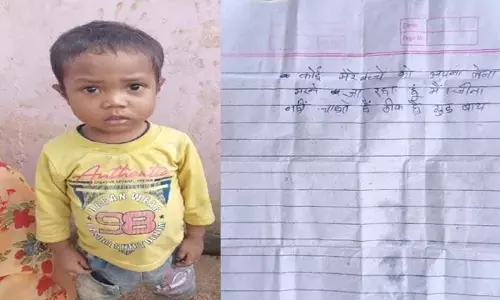 Authentic
98
Date
Page No
कोई मेरे बच्चे को अपना लेना
मरने जा रहा हूं मैं जीना
नहीं चाहते हैं ठीक है गुड बाय